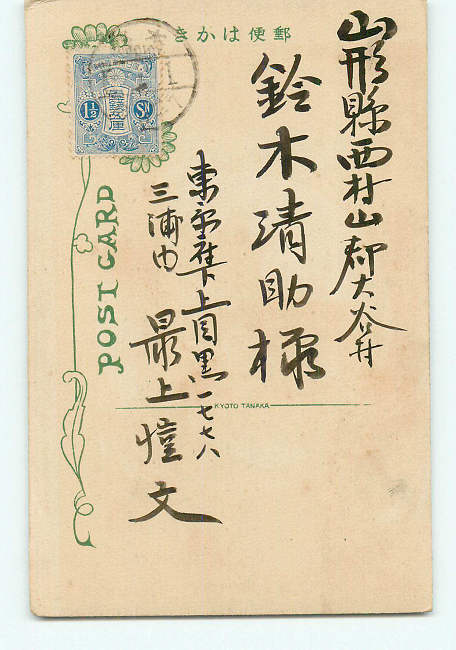 郵便はかき
山形縣西村山郡大谷村
鈴木清助様
東京府下上目黒一七七八
三浦内
最上 文
POST CARD
1½ Sn
KYOTO TANAKA